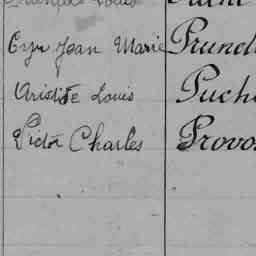 Louis
Cyr Jean Marie Prunel
Aristide Louis Puch
Victor Charles Provos